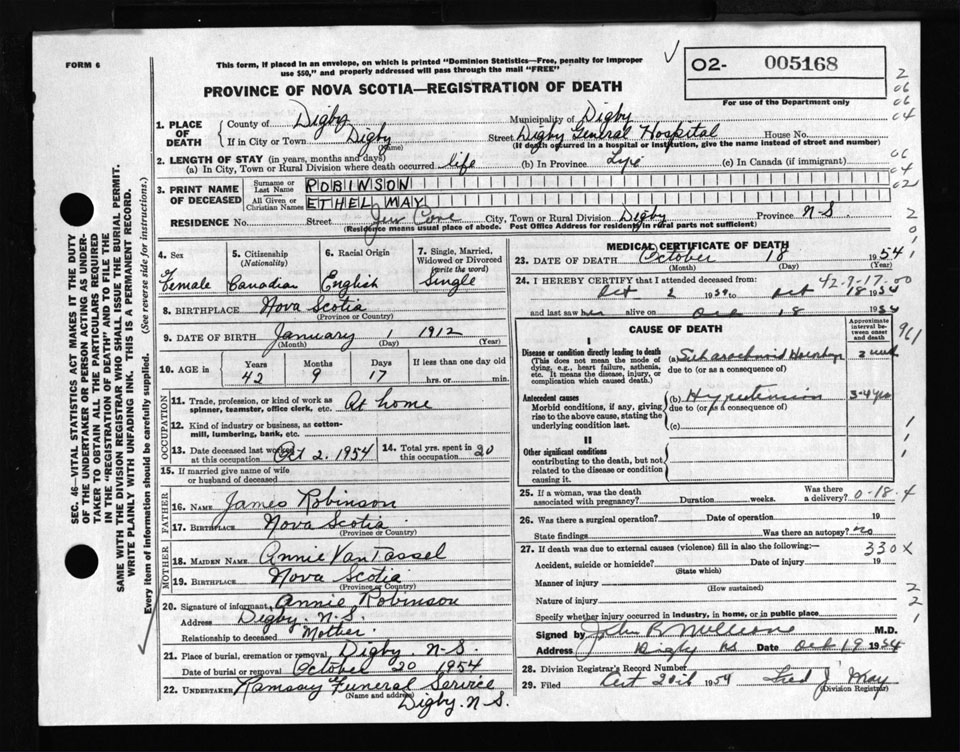 FORM 6
This form, if placed in an envelope, on which is printed "Dominion Statistics—Free, penalty for improper
use $50," and properly addressed will pass through the mail "FREE"
O2- 005168
For use of the Department only
PROVINCE OF NOVA SCOTIA—REGISTRATION OF DEATH
1. PLACE OF DEATH
County of Digby Municipality of Digby
If in City or Town Digby Street Digby General Hospital House No.
(Name) (If death occurred in a hospital or institution, give the name instead of street and number)
2. LENGTH OF STAY (in years, months and days)
(a) In City, Town or Rural Division where death occurred life (b) In Province Life (c) In Canada (if immigrant)
3. PRINT NAME OF DECEASED
Surname or Last Name ROBINSON
All Given or Christian Names ETHEL MAY
RESIDENCE No. Street Cove City, Town or Rural Division Digby Province N-S.
(Residence means usual place of abode. Post Office Address for residents in rural parts not sufficient)
4. Sex
Female
5. Citizenship
(Nationality)
Canadian
6. Racial Origin
English
7. Single, Married, Widowed or Divorced
(write the word)
Single
8. BIRTHPLACE Nova Scotia
(Province or Country)
9. DATE OF BIRTH January 1 1912
(Month) (Day) (Year)
10. AGE in Years Months Days If less than one day old
42 9 17 hrs. or min.
OCCUPATION
11. Trade, profession, or kind of work as
spinner, teamster, office clerk, etc. At home
12. Kind of industry or business, as cotton-
mill, lumbering, bank, etc.
13. Date deceased last worked
at this occupation Oct 2. 1954
14. Total yrs. spent in
this occupation 20
15. If married give name of wife
or husband of deceased
FATHER
16. Name James Robinson
17. Birthplace Nova Scotia
(Province or Country)
MOTHER
18. MAIDEN NAME Annie VanTassel
19. BIRTHPLACE Nova Scotia
(Province or Country)
20. Signature of informant Annie Robinson
Address Digby. N-S.
Relationship to deceased Mother.
21. Place of burial, cremation or removal Digby. N-S.
Date of burial or removal October 20 1954
22. UNDERTAKER Ramsay Funeral Service
(Name and address)
Digby. N-S.
MEDICAL CERTIFICATE OF DEATH
23. DATE OF DEATH October 18 1954
(Month) (Day) (Year)
42-9-17-00
24. I HEREBY CERTIFY that I attended deceased from:
Oct 2 1954 to Oct 18 1954
and last saw her alive on Oct 18 1954
CAUSE OF DEATH
Approximate interval between onset and death
I
Disease or condition directly leading to death
(This does not mean the mode of
dying, e.g., heart failure, asthenia,
etc. It means the disease, injury, or
complication which caused death.)
(a) Subarachnoid 2 week
due to (or as a consequence of)
Antecedent causes
Morbid conditions, if any, giving
rise to the above cause, stating the
underlying condition last.
(b) Hypertension 3-4 yrs
due to (or as a consequence of)
(c)
II
Other significant conditions
contributing to the death, but not
related to the disease or condition
causing it.
25. If a woman, was the death
associated with pregnancy? Duration weeks. Was there
a delivery? 0-18-4
26. Was there a surgical operation? Date of operation 19
State findings Was there an autopsy? no
27. If death was due to external causes (violence) fill in also the following:— 330X
Accident, suicide or homicide? Date of injury 19
(State which)
Manner of injury
(How sustained)
Nature of injury
Specify whether injury occurred in industry, in home, or in public place
Signed by John R M.D.
Address Digby NS Date Oct 19 1954
28. Division Registrar's Record Number
29. Filed Oct 20th 1954 Fred J May
(Division Registrar)
SEC. 46—VITAL STATISTICS ACT MAKES IT THE DUTY
OF THE UNDERTAKER OR PERSON ACTING AS UNDER-
TAKER TO OBTAIN ALL THE PARTICULARS REQUIRED
IN THE "REGISTRATION OF DEATH" AND TO FILE THE
SAME WITH THE DIVISION REGISTRAR WHO SHALL ISSUE THE BURIAL PERMIT.
WRITE PLAINLY WITH UNFADING INK. THIS IS A PERMANENT RECORD.
Every item of information should be carefully supplied. (See reverse side for instructions.)
2
06
06
04
06
04
02
2
0
1
961
1
1
1
2
2
1